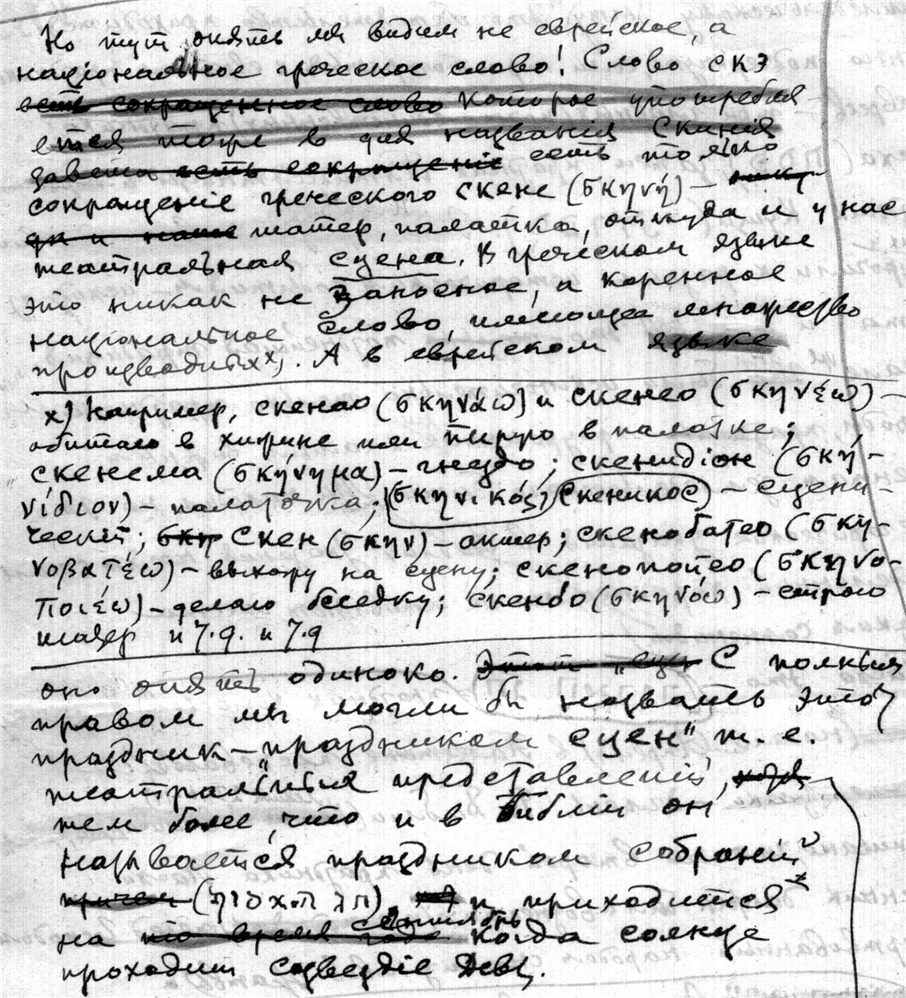 Но тут опять мы видим не еврейское, а
національное греческое слово! Слово СКЭ
есть сокращенное слово которое употребля-
ется тоже в для названія Скинія
завета есть сокращеніе есть только
сокращеніе греческого скене (σκηνή) —
да и наше шатер, палатка, откуда и у нас
театральная сцена. В греческом языке
это никак не заносное, а коренное
національное слово, имеющее множество
производных х). А в еврейском языке
х) Например, скенао (σκηνάω) и скенео (σκηνέω) —
обитаю в хижине или пирую в палатке;
скенема (σκήνημα) — гнездо; скенидіон (σκη-
νίδιον) — палаточка; (σκηνικός) скеникос) — сцени-
ческій; σκη скен (σκην) — актер; скенобатео (σκη-
νοβατέω) — выхожу на сцену; скенопоіео (σκηνο-
ποιέω) — делаю беседку; скеноо (σκηνόω) — строю
шатер и т.д. и т.д
оно опять одиноко. Этот "сцен С полным
правом мы могли бы назвать этот
праздник — "праздником сцен" т. е.
театральных представленій,
тем более, что и в Библіи он
называется праздником собраній
причем и приходится
на то время года сентябрь когда солнце
проходит созвездіе Девы.